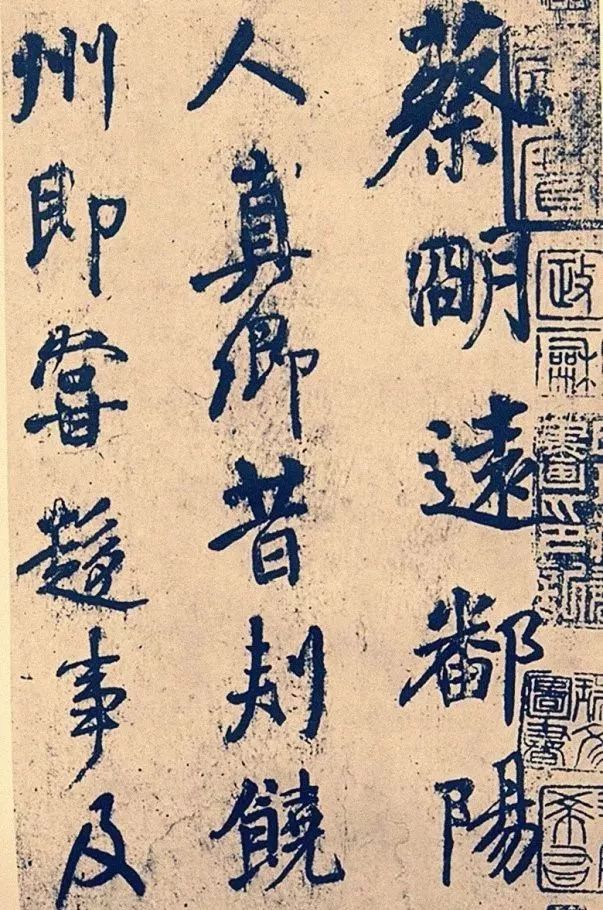 蔡明遠鄱陽
人真卿昔刺饒
州即嘗趨事及